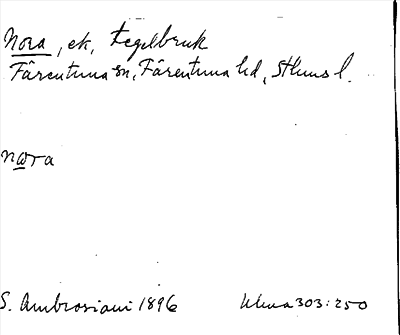 Nora, ek, tegelbruk
Färentuna sn, Färentuna hd, Sthlms l.
nωra
S. Ambrosiani 1896 Ulma 303:250